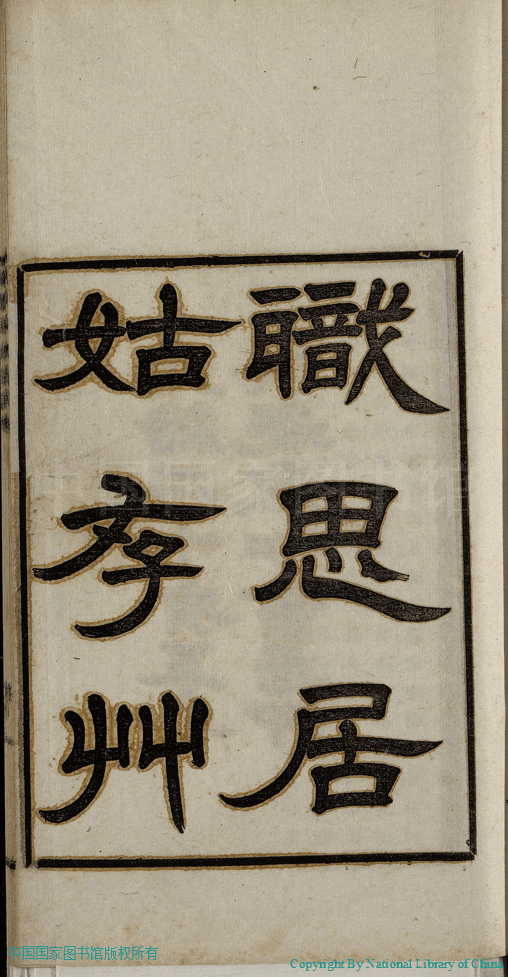 職思居
姑存艸
中国国家图书馆
中国国家图书馆版权所有
Copyright By National Library of China